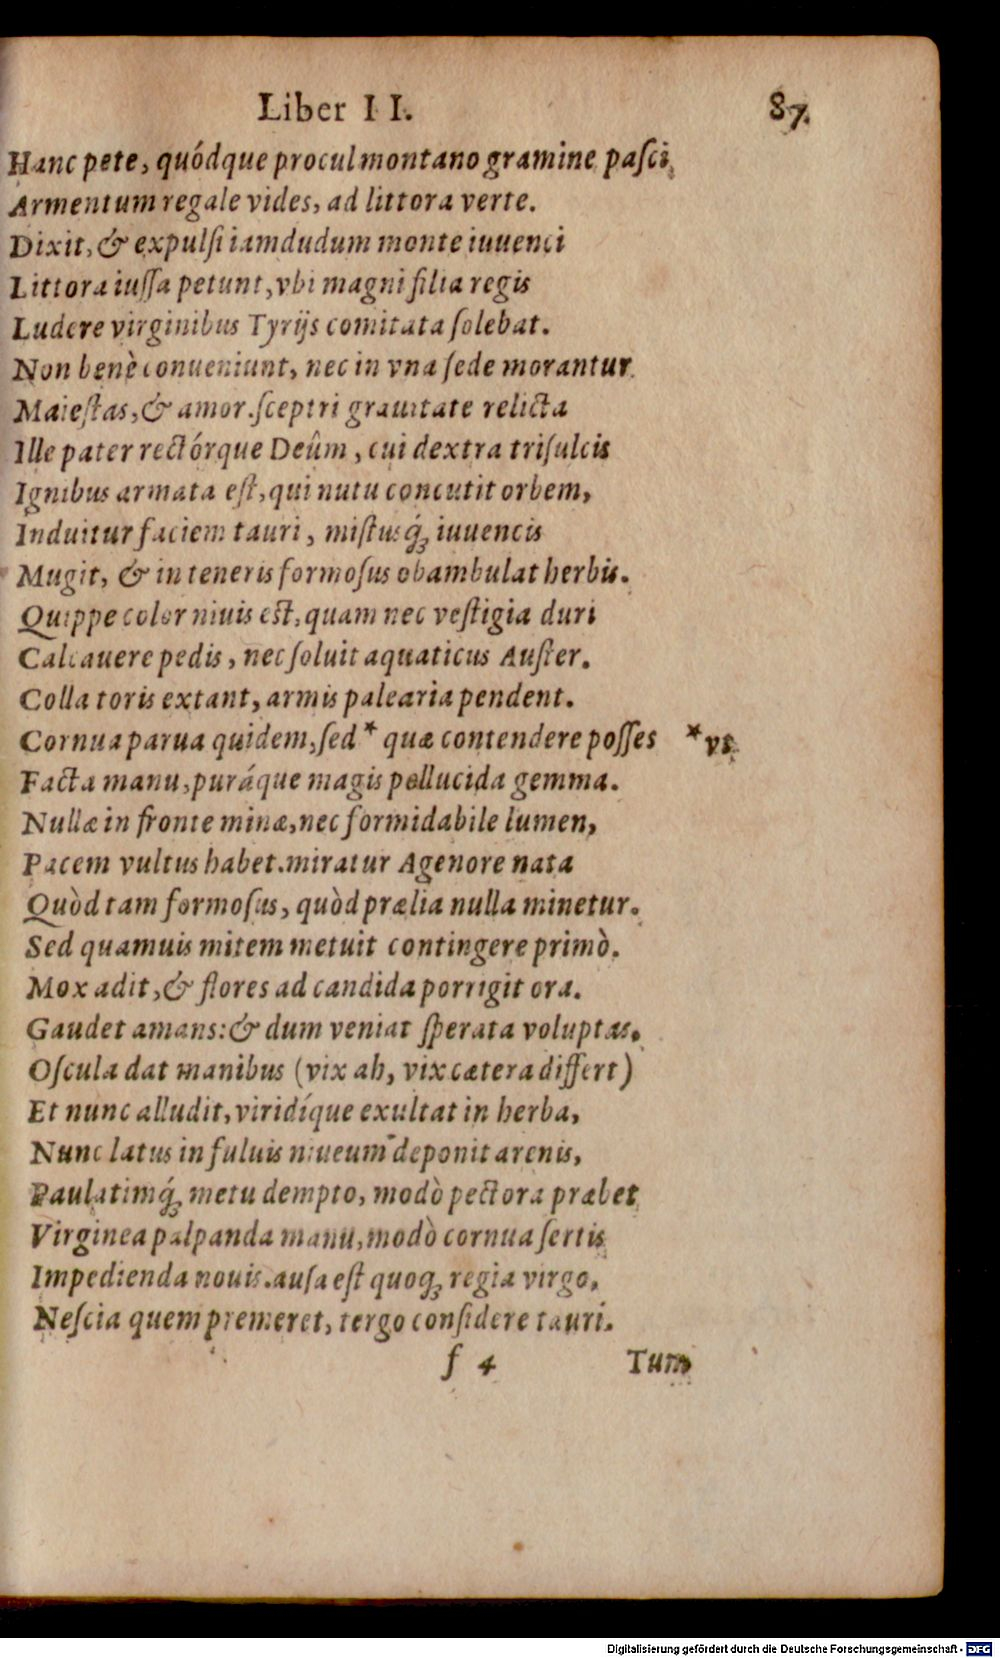 Liber II. 87.
Hanc pete, quódque procul montano gramine pasci,
Armentum regale vides, ad littora verte.
Dixit, & expulsi iamdudum monte iuuenci
Littora iussa petunt, vbi magni filia regis
Ludere virginibus Tyrijs comitata solebat.
Non benè conueniunt, nec in vna sede morantur
Maiestas, & amor. sceptri grauitate relicta
Ille pater rectórque Deûm, cui dextra trisulcis
Ignibus armata est, qui nutu concutit orbem,
Induitur faciem tauri, mistusq́; iuuencis
Mugit, & in teneris formosus obambulat herbis.
Quippe color niuis est, quam nec vestigia duri
Calcauere pedis, nec soluit aquaticus Auster.
Colla toris extant, armis palearia pendent.
Cornua parua quidem, sed * quæ contendere posses *vt
Facta manu, puráque magis pellucida gemma.
Nullæ in fronte minæ, nec formidabile lumen,
Pacem vultus habet. miratur Agenore nata
Quòd tam formosus, quòd prælia nulla minetur.
Sed quamuis mitem metuit contingere primò.
Mox adit, & flores ad candida porrigit ora.
Gaudet amans: & dum veniat sperata voluptas,
Oscula dat manibus (vix ah, vix cætera differt)
Et nunc alludit, viridíque exultat in herba,
Nunc latus in fuluis niueum deponit arenis,
Paulatimq́; metu dempto, modò pectora præbet
Virginea palpanda manu, modò cornua sertis
Impedienda nouis. ausa est quoq; regia virgo,
Nescia quem premeret, tergo considere tauri.
f 4 Tum
Digitalisierung gefördert durch die Deutsche Forschungsgemeinschaft - DFG